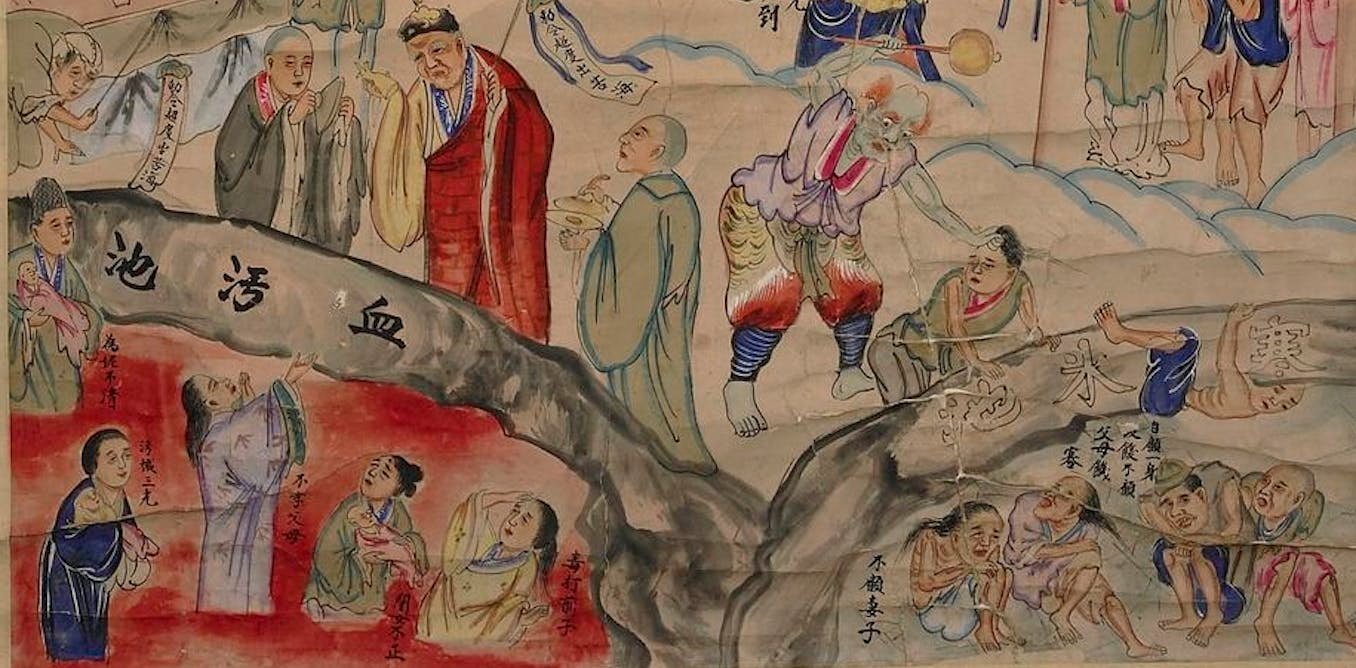 到
勅令超度出苦海
勅令超度出苦海
血汚池
不清
三光
不孝父母
不正
毒打前子
寒氷池
自顧一身
不顧
父母饑
寒
不顧妻子